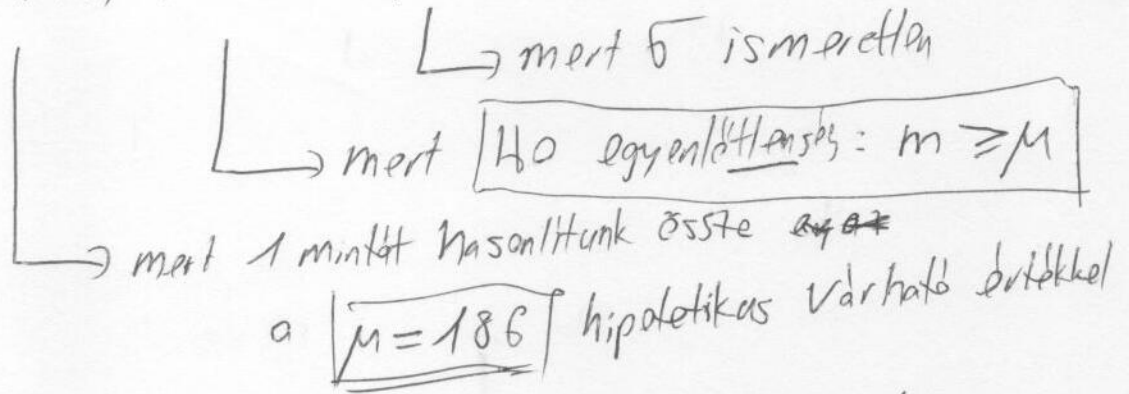 mert σ ismeretlen
mert H0 egyenlőtlenség: m ≥ μ
mert 1 mintát hasonlítunk össze
a μ = 186 hipotetikus várható értékkel